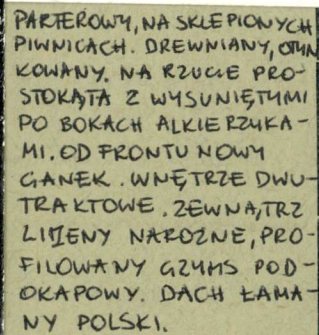 PARTEROWY, NA SKLEPIONYCH
PIWNICACH. DREWNIANY, OTYN
KOWANY. NA RZUCIE PRO-
STOKĄTA Z WYSUNIĘTYMI
PO BOKACH ALKIERZYKA-
MI. OD FRONTU NOWY
GANEK. WNĘTRZE DWU-
TRAKTOWE. ZEWNĄTRZ
LIZENY NAROŻNE, PRO-
FILOWANY GZYMS POD-
OKAPOWY. DACH ŁAMA-
NY POLSKI.